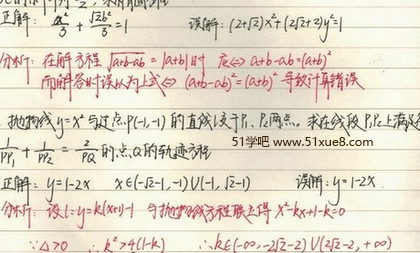 正解: x²/3 + √2b²/3 = 1 误解: (2+√2)x²+(2√2+2)y²=1
分析: 在解方程 √(a+b-ab) = |a+b| 时 应⇔ a+b-ab=(a+b)²
而解答时误以为上式⇔ (a+b-ab)²=(a+b)² 导致计算错误
抛物线y=x²与过点P(-1,-1)的直线l交于P₁、P₂两点。求在线段P₁P₂上满足
1/PP₁ + 1/PP₂ = 2/PQ 的点Q的轨迹方程
51学吧 www.51xue8.com
正解: y=1-2x x∈(-√2-1,-1)∪(-1,√2-1) 误解: y=1-2x
分析: 设l: y=k(x+1)-1 与抛物线方程联立得 x²-kx+1-k=0
∵Δ>0 ∴k²>4(1-k) ∴k∈(-∞,-2√2-2)∪(2√2-2,+∞)